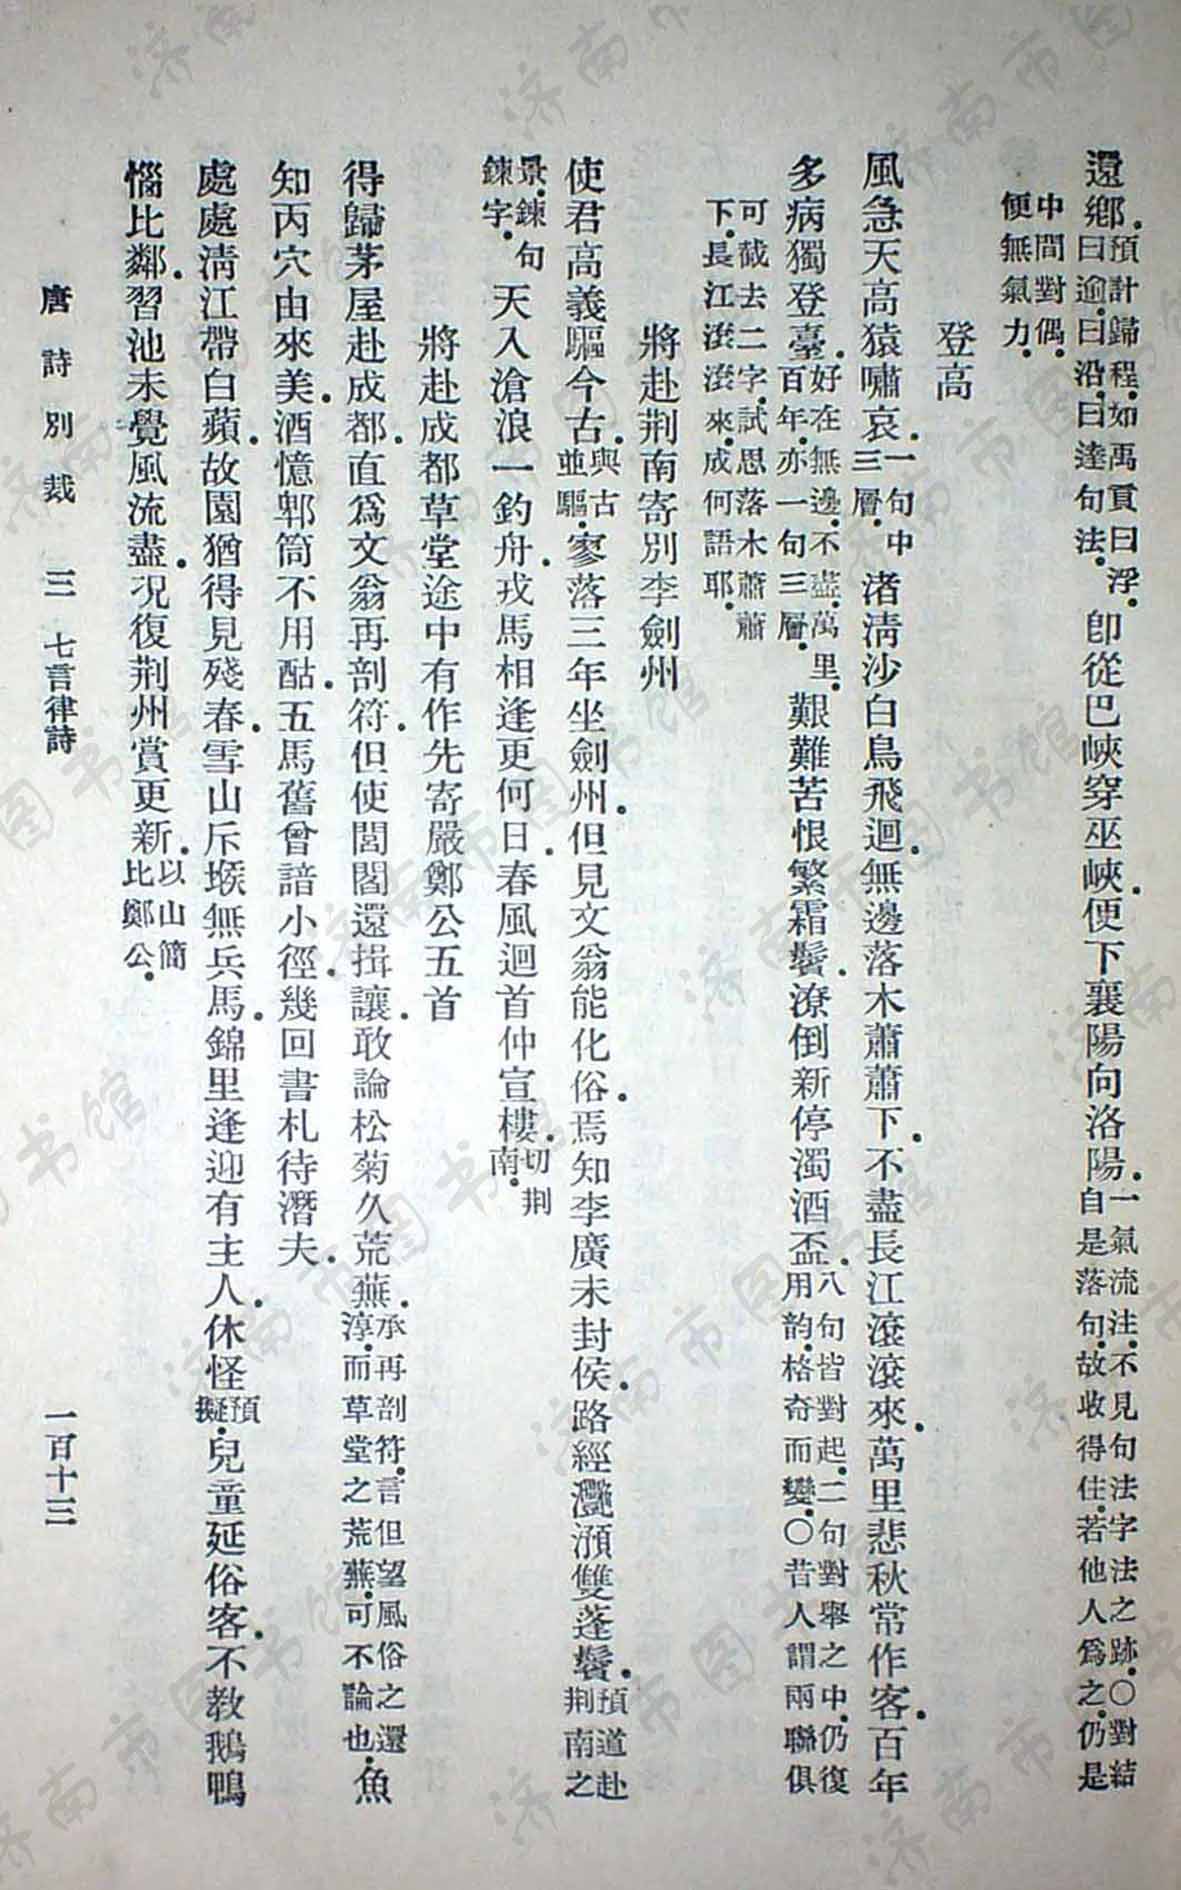 還鄉。預計歸程。如禹貢曰浮。曰逾。曰沿。曰達句法。卽從巴峽穿巫峽。便下襄陽向洛陽。一氣流注。不見句法字法之跡。〇對結自是落句。故收得住。若他人爲之。仍是
中間對偶。便無氣力。
登高
風急天高猿嘯哀。一句中三層。渚淸沙白鳥飛迴。無邊落木蕭蕭下。不盡長江滾滾來。萬里悲秋常作客。百年
多病獨登臺。好在無邊。不盡。萬里。百年。亦一句三層。艱難苦恨繁霜鬢。潦倒新停濁酒盃。八句皆對起。二句對舉之中。仍復用韵。格奇而變。〇昔人謂兩聯俱
可截去二字。試思落木蕭蕭下。長江滾滾來。成何語耶。
將赴荆南寄別李劍州
使君高義驅今古。與古並驅。寥落三年坐劍州。但見文翁能化俗。焉知李廣未封侯。路經灩澦雙蓬鬢。預道赴荆南之
景。鍊句鍊字。天入滄浪一釣舟。戎馬相逢更何日。春風迴首仲宣樓。切荆南。
將赴成都草堂途中有作先寄嚴鄭公五首
得歸茅屋赴成都。直爲文翁再剖符。但使閭閻還揖讓。敢論松菊久荒蕪。承再剖符。言但望風俗之還淳。而草堂之荒蕪。可不論也。魚
知丙穴由來美。酒憶郫筒不用酤。五馬舊曾諳小徑。幾回書札待潛夫。
處處淸江帶白蘋。故園猶得見殘春。雪山斥堠無兵馬。錦里逢迎有主人。休怪預擬。兒童延俗客。不敎鵝鴨
惱比鄰。習池未覺風流盡。况復荆州賞更新。以山簡比鄭公。
唐詩別裁 三 七言律詩 一百十三